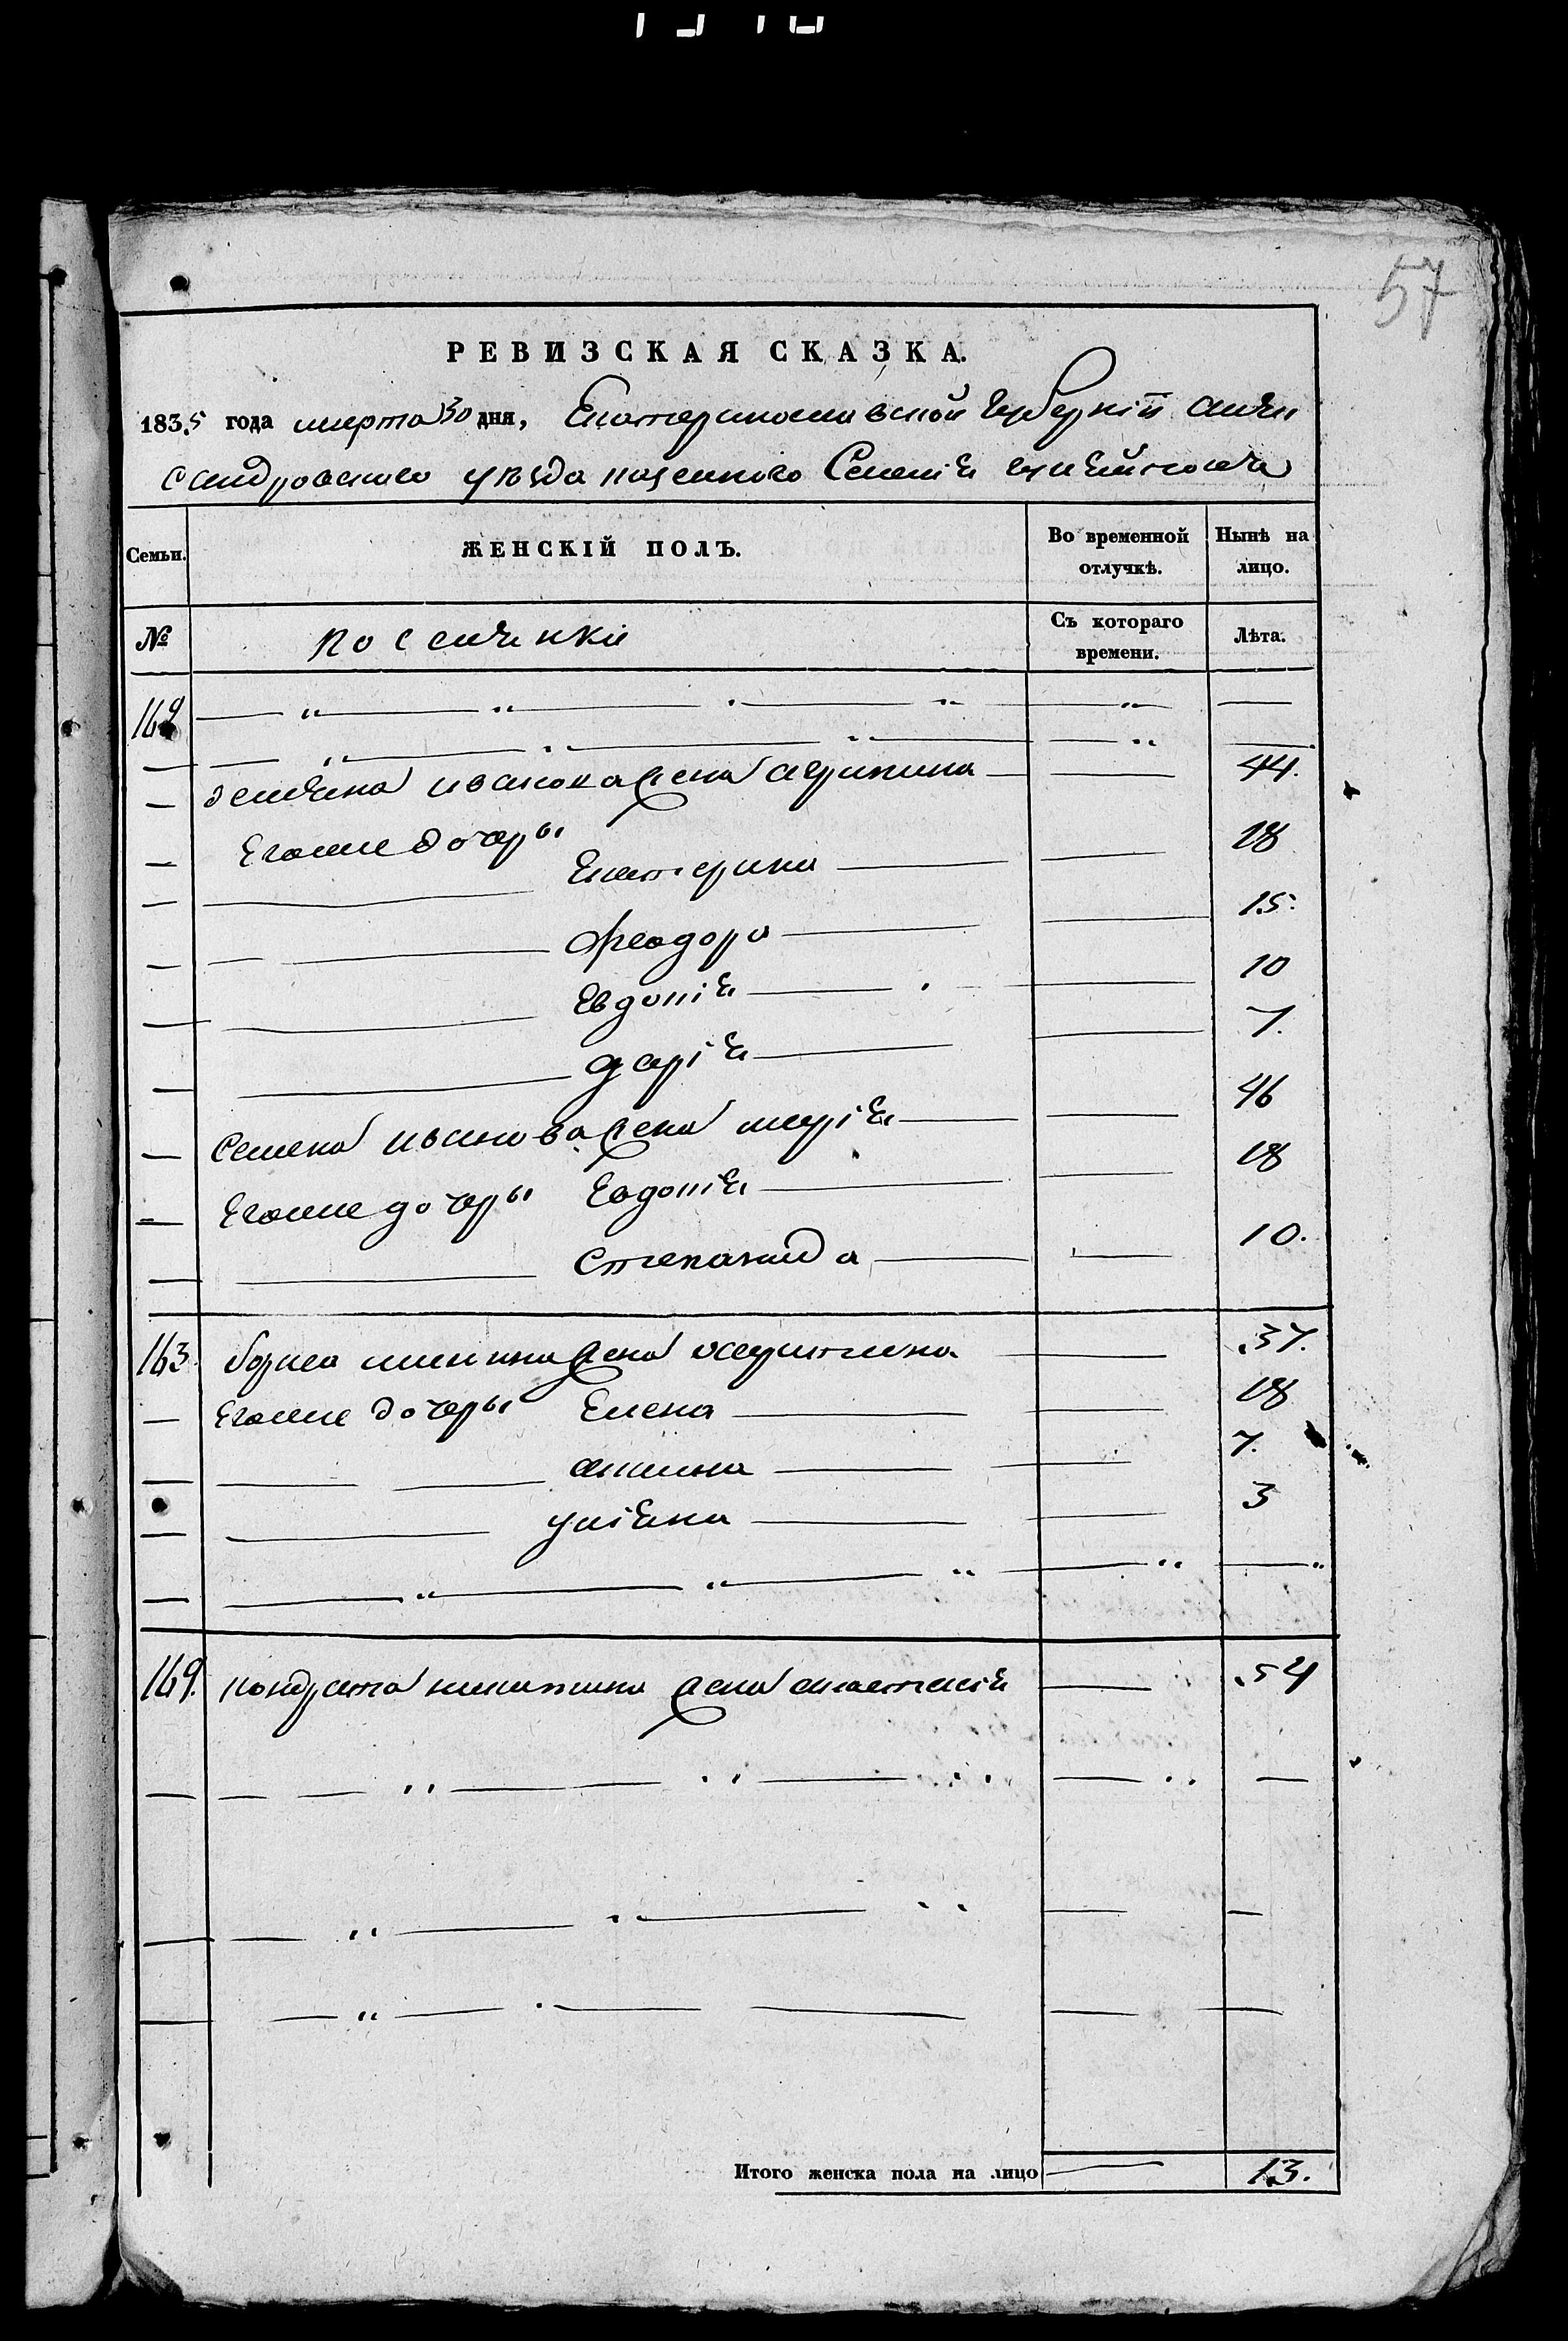 57
РЕВИЗСКАЯ СКАЗКА.
1835 года марта 30 дня, Екатеринославской Губерніи алек
сандровского уѣзда казенного Селенія
Семьи. ЖЕНСКІЙ ПОЛЪ. Во временной отлучкѣ. Нынѣ на лицо.
№ поселянки Съ котораго времени. Лѣта.
162
демяна иванова жена агрипина 44.
Егоже дочеры
Екатерина 18
феодора 15.
Евдокія 10
дарія 7.
Семена иванова жена марія 46
Егоже дочеры Евдокія 18
степанида 10.
163 бориса жена 37.
Егоже дочеры Елена 18
акилина 7.
уліяна 3
164. кондрата никитина жена анастасія 54
Итого женска пола на лицо 13.